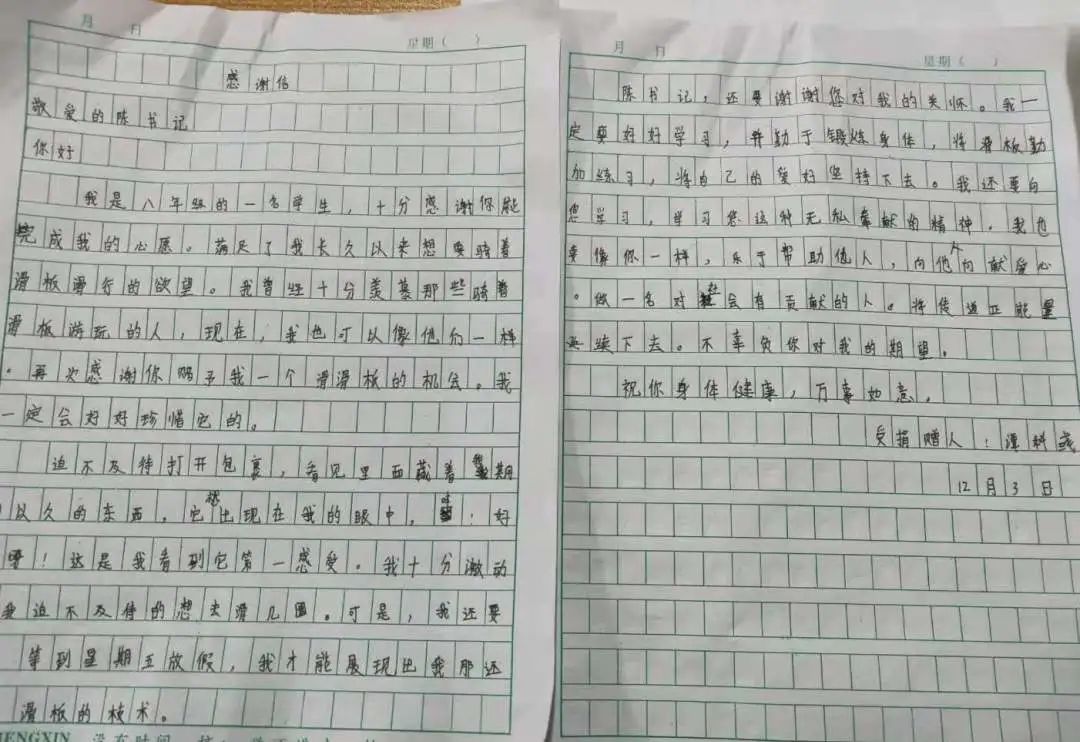 月 日 星期（ ）
感谢信
敬爱的陈书记
你好
我是八年级的一名学生，十分感谢你能
完成我的心愿。满足了我长久以来想要骑着
滑板滑行的欲望。我曾经十分羡慕那些骑着
滑板游玩的人，现在，我也可以像他们一样
。再次感谢你赐予我一个滑滑板的机会。我
一定会好好珍惜它的。
迫不及待打开包裹，看见里面藏着我期
以久的东西，它出现在我的眼中，哇！好
呀！这是我看到它第一感受。我十分激动
我迫不及待的想去滑几圈。可是，我还要
等到星期五放假，我才能展现出我那还
滑板的技术。
月 日 星期（ ）
陈书记，还要谢谢您对我的关怀。我一
定要好好学习，并勤于锻炼身体，将滑板勤
加练习，将自己的爱好坚持下去。我还要向
您学习，学习您这种无私奉献的精神，我也
要像你一样，乐于帮助他人，向他人向献爱心
。做一名对社会有贡献的人。将传递正能量
续下去。不辜负你对我的期望。
祝你身体健康，万事如意。
受捐赠人：谭科
12月3日